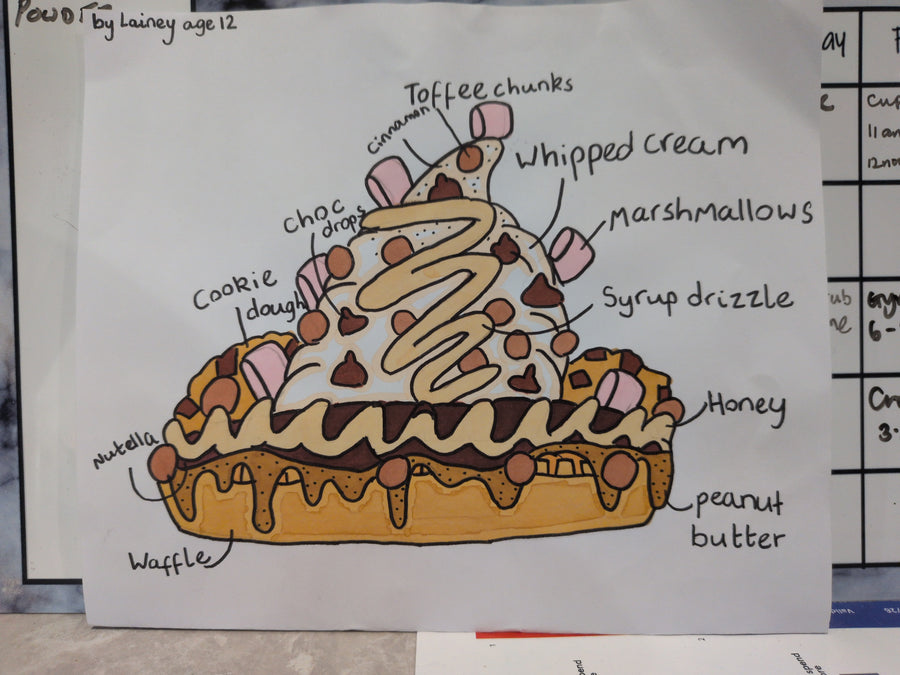 Powd
by Lainey age 12
Toffee chunks
cinnamon
Whipped cream
choc
drops
Marshmallows
Cookie
dough
Syrup drizzle
Honey
Nutella
peanut
butter
Waffle
ay
F
e
cup
11 am
12 no
rub
ne
6-
3.
spend
spend